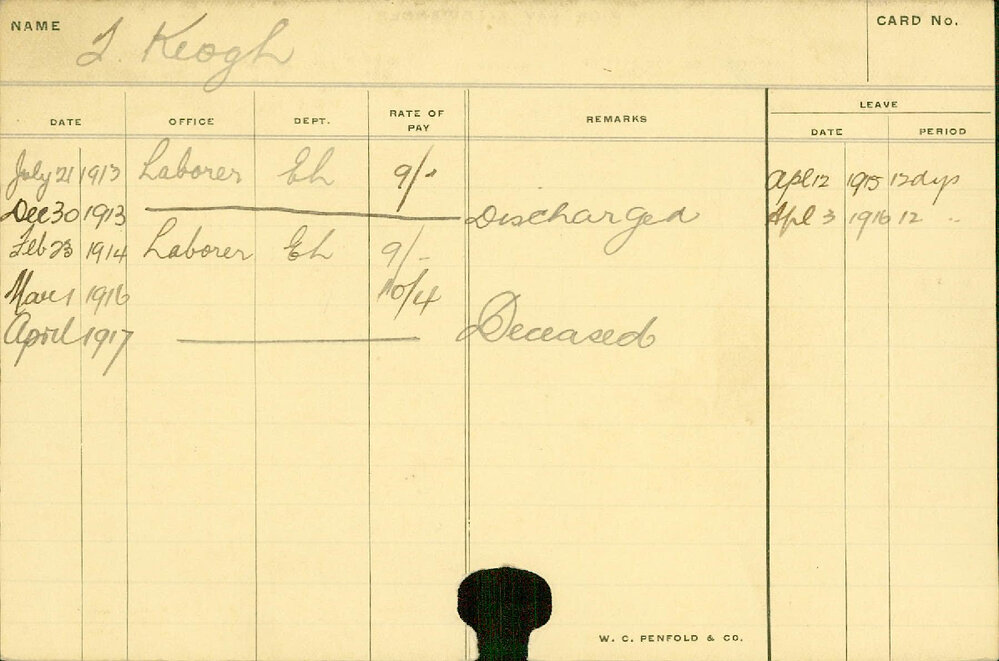 NAME J. Keogh CARD No.
LEAVE
DATE OFFICE DEPT. RATE OF PAY REMARKS DATE PERIOD
July 21 1913 Laborer Eh 9/- Apl 12 1915 12 dys
Dec 30 1913 Discharged Apl 3 1916 12 "
Feb 23 1914 Laborer Eh 9/-
Mar 1 1916 10/4
April 1917 Deceased
W. C. PENFOLD & CO.